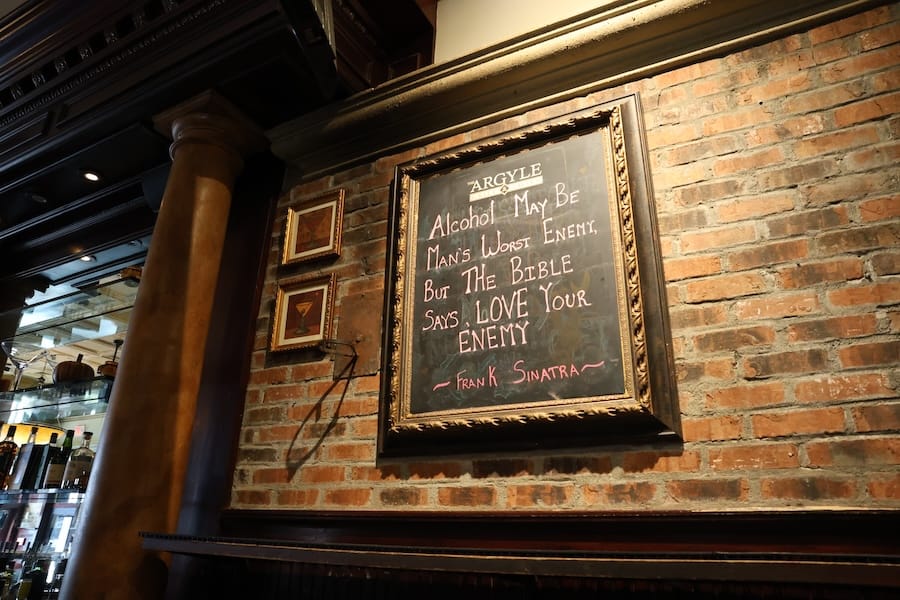 ARGYLE
Alcohol May Be
Man's Worst Enemy,
But The Bible
Says, LOVE Your
ENEMY
~ Frank Sinatra ~